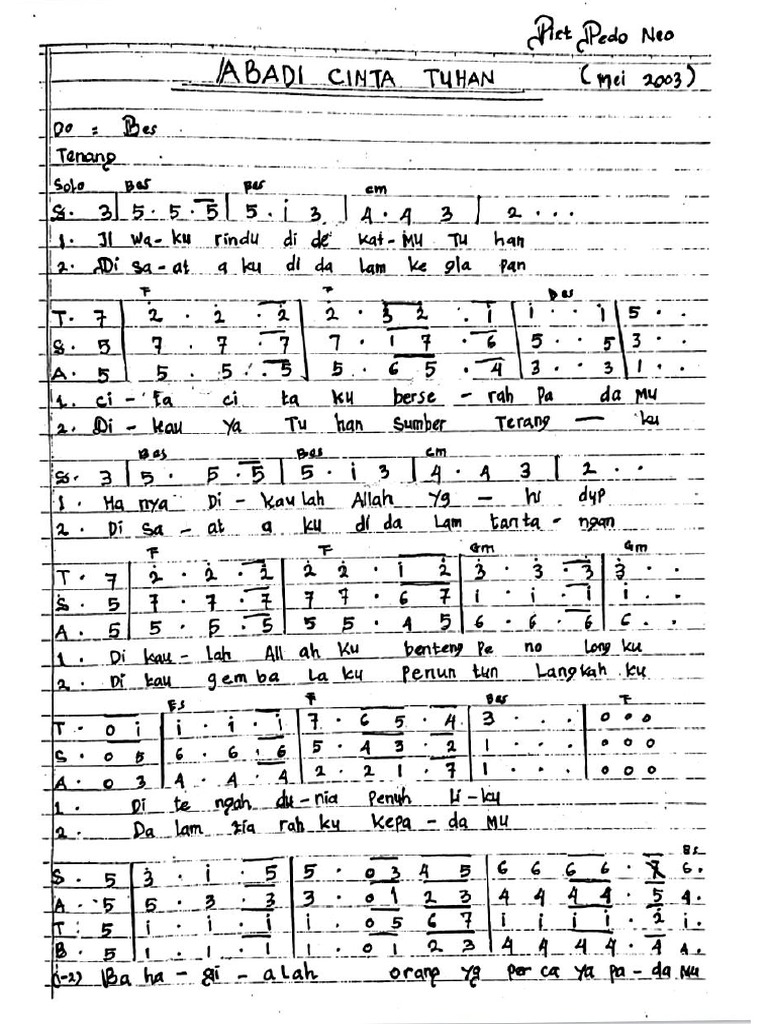 Piet Pedo Neo
ABADI CINTA TUHAN (Mei 2003)
Do = Bes
Tenang
Solo Bes Bes Cm
S. 3 | 5 . 5 . 5 | 5 . i 3 | 4 . 4 3 | 2 . . .
1. JI wa-ku rindu di de kat-MU Tu han
2. Di sa-at a ku di da lam ke gla pan
F F Bes
T. 7 | 2̇ . 2̇ . 2̇ | 2̇ . 3̇ 2̇ . i | i . . i | 5 . .
S. 5 | 7 . 7 . 7 | 7 . i 7 . 6 | 5 . . 5 | 3 . .
A. 5 | 5 . 5 . 5 | 5 . 6 5 . 4 | 3 . . 3 | 1 . .
1. ci - ta ci ta ku berse - rah Pa da MU
2. Di - kau ya Tu han sumber Terang — ku
Bes Bes Cm
S. 3 | 5 . 5 . 5 | 5 . i 3 | 4 . 4 3 | 2 . .
1. Ha nya Di - kaulah Allah yg - hi dyp
2. Di sa - at a ku di da lam tanta - ngan
F F Gm Gm
T. 7 | 2̇ . 2̇ . 2̇ | 2̇ 2̇ . i 2̇ | 3̇ . 3̇ . 3̇ | 3̇ . .
S. 5 | 7 . 7 . 7 | 7 7 . 6 7 | i . i . i | i . .
A. 5 | 5 . 5 . 5 | 5 5 . 4 5 | 6 . 6 . 6 | 6 . .
1. Di kau - lah All ah ku benteng Pe no long ku
2. Di kau gem ba la ku Penun tun Langkah ku
Es F Bes F
T . 0 i | i . i . i | 7 . 6 5 . 4 | 3 . . . | 0 0 0
S . 0 5 | 6 . 6 . 6 | 5 . 4 3 . 2 | 1 . . . | 0 0 0
A . 0 3 | 4 . 4 . 4 | 2 . 2 1 . 7 | 1 . . . | 0 0 0
1. Di te ngah du-nia Penuh li-ku
2. Da lam zia rah ku kepa-da MU
Es
S . 5 | 3̇ . i . 5 | 5 . 0 3 4 5 | 6 6 6 6 . 6 .
A . 5 | 5 . 3 . 3 | 3 . 0 1 2 3 | 4 4 4 4 . 5 4 .
T . 5 | i . i . i | i . 0 5 6 7 | i i i i . 2̇ i .
B . 5 | 1 . 1 . 1 | 1 . 0 1 2 3 | 4 4 4 4 . 4 4 .
(1-2) Ba ha - gi - alah orang yg per ca ya pa-da MU